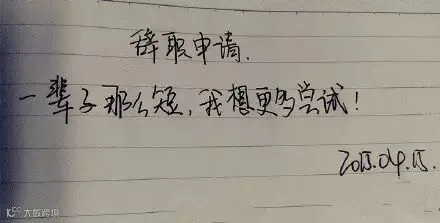 辞职申请.
一辈子那么短，我想更多尝试！
2015.04.15.
大数跨境